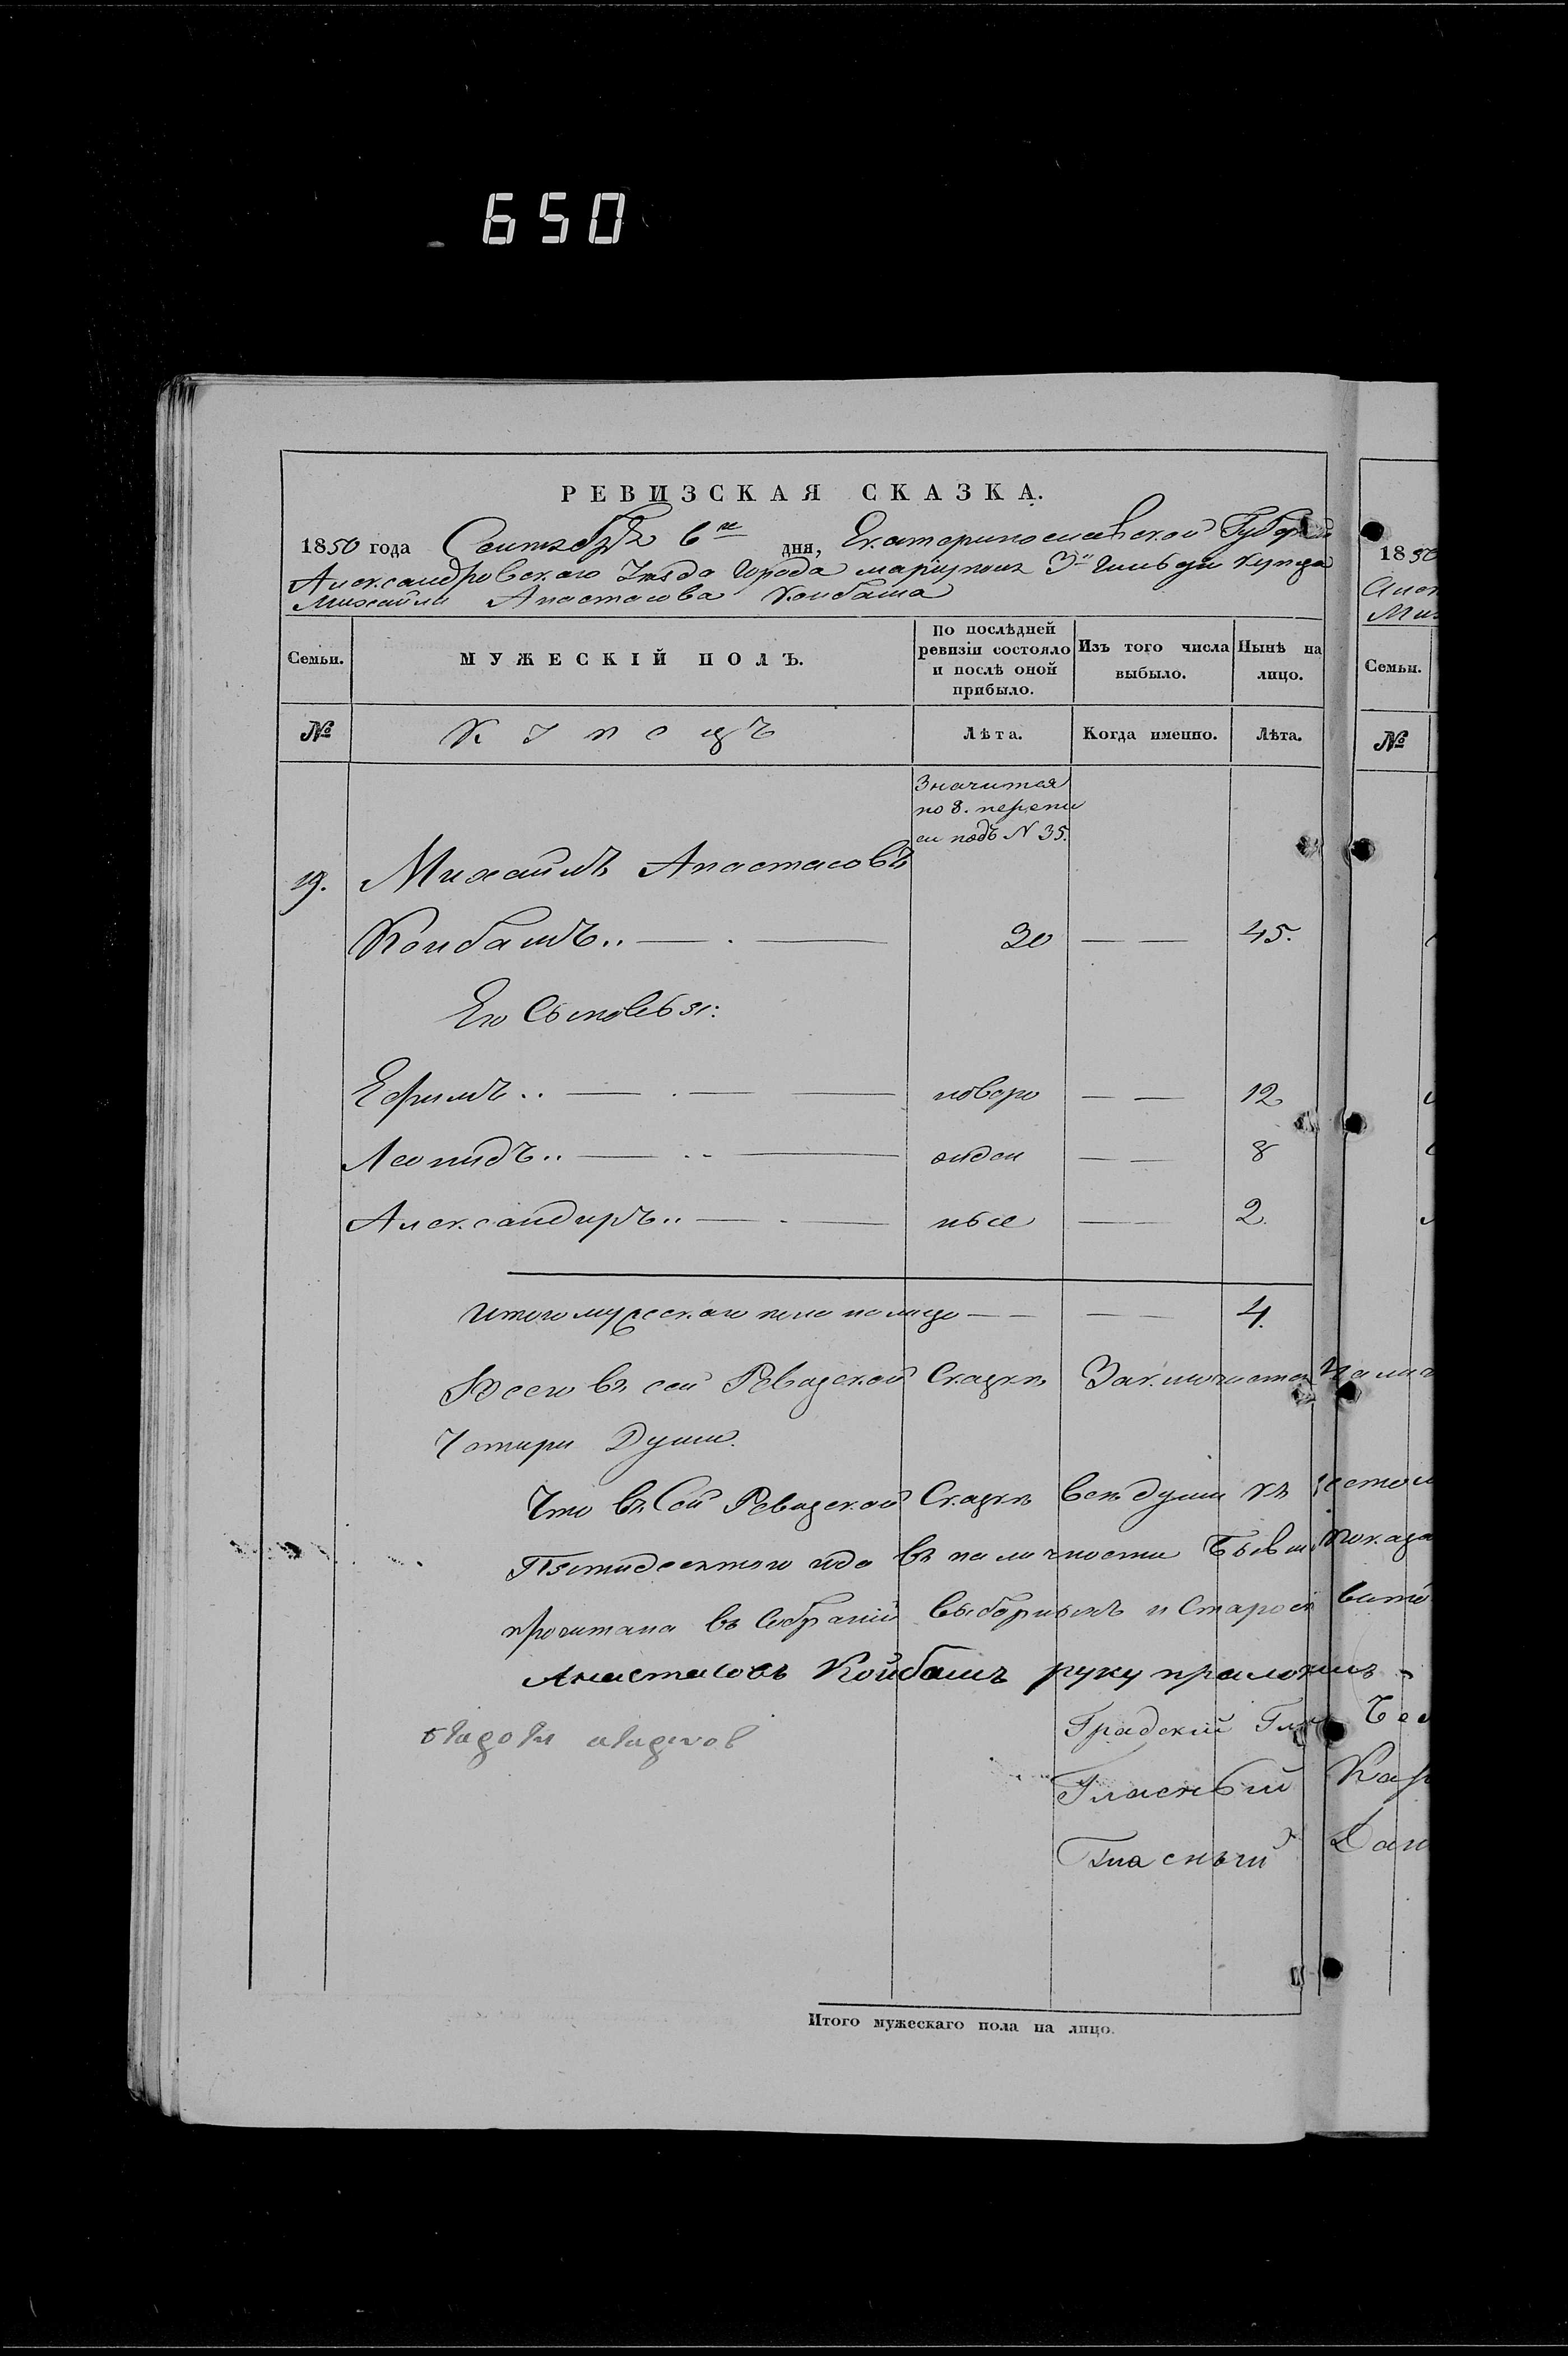 650
РЕВИЗСКАЯ СКАЗКА.
1850 года Сентября 6го дня, Екатеринославской Губерніи
Александровскаго Уѣзда города Маріуполя 3й гильдіи купца
Михайли Анастасова Коибаша
Семьи.
МУЖЕСКІЙ ПОЛЪ.
По послѣдней ревизіи состояло и послѣ оной прибыло.
Изъ того числа выбыло.
Нынѣ на лицо.
№
Купецъ
Лѣта.
Когда именно.
Лѣта.
Значится
по 8. перепи
си подъ N 35.
19. Михаилъ Анастасовъ
Коибашъ.. 30 45.
Его Сыновья:
Ефимъ.. новоро 12
Леонидъ.. жден 8
Александиръ.. ные 2.
Итого мужескаго пола на лицо 4.
Всего въ сей Ревизской Сказкѣ Заключается Налич
Чотыри Души.
Что въ Сей Ревизской Сказкѣ всѣ души къ
Пятидесятого года въ наличности бывш показа
прочитана въ Собраніи выборныхъ и Старост
Анастасовъ Койбашъ руку приложилъ
Градскій Гла
Гласный Кар
Гласный
Итого мужескаго пола на лицо.
1850
Семьи.
№